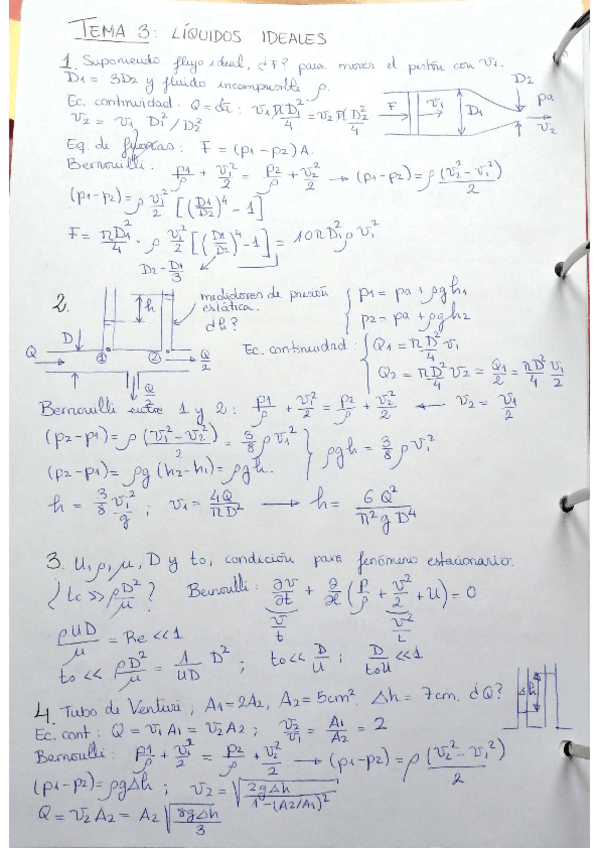 TEMA 3: LÍQUIDOS IDEALES
1. Suponiendo flujo ideal, ¿F? para mover el pistón con v1.
D1 = 3D2 y fluido incompresible ρ.
Ec. continuidad: Q = cte: v1 πD1²/4 = v2 πD2²/4
v2 = v1 D1²/D2²
F v1 D1 D2 pa v2
Eq. de fuerzas: F = (p1-p2) A.
Bernouilli: p1/ρ + v1²/2 = p2/ρ + v2²/2 → (p1-p2) = ρ (v2²-v1²)/2
(p1-p2) = ρ v1²/2 [(D1/D2)⁴ - 1]
F = πD1²/4 · ρ v1²/2 [(D1/D2)⁴ - 1] = 10πD1²ρv1²
D2 = D1/3
2.
h
medidores de presión estática.
¿h?
D Q ① ② Q/2 Q/2
{ p1 = pa + ρgh1
p2 = pa + ρgh2
Ec. continuidad: { Q1 = πD²/4 v1
Q2 = πD²/4 v2 = Q1/2 = πD²/4 v1/2
Bernouilli entre 1 y 2: p1/ρ + v1²/2 = p2/ρ + v2²/2 ← v2 = v1/2
(p2-p1) = ρ (v1²-v2²)/2 = 3/8 ρv1²
(p2-p1) = ρg (h2-h1) = ρgh.
} ρgh = 3/8 ρv1²
h = 3/8 v1²/g ; v1 = 4Q/πD² → h = 6Q²/π²gD⁴
3. U, ρ, μ, D y to, condición para fenómeno estacionario:
¿tc >> ρD²/μ? Bernoulli: ∂v/∂t + ∂/∂x (p/ρ + v²/2 + U) = 0
v/t v²/L
ρUD/μ = Re << 1
to << ρD²/μ = 1/UD D² ; to << D/U ; D/toU << 1
4. Tubo de Venturi, A1 = 2A2, A2 = 5cm². Δh = 7cm. ¿Q?
Δh
Ec. cont: Q = v1A1 = v2A2 ; v2/v1 = A1/A2 = 2
Bernoulli: p1/ρ + v1²/2 = p2/ρ + v2²/2 → (p1-p2) = ρ (v2²-v1²)/2
(p1-p2) = ρgΔh ; v2 = √(2gΔh/1-(A2/A1)²)
Q = v2A2 = A2 √(8gΔh/3)